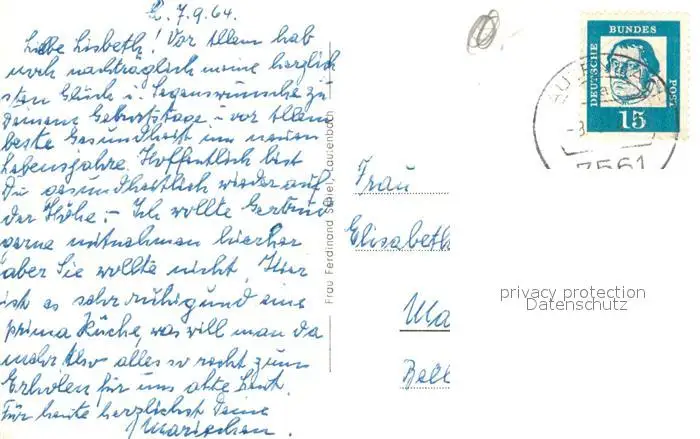 L. 7.9.64.
Liebe Lisbeth! Vor Allem hab
noch nachträglich meine herzlich
sten Glück u. Segenswünsche zu
Deinem Geburtstage – vor Allem
beste Gesundheit im neuen
Lebensjahre. Hoffentlich bist
Du gesundheitlich wieder auf
der Höhe. – Ich wollte Gertrud
gerne mitnehmen hierher
aber Sie wollte nicht, Hier
ist es sehr ruhig und eine
prima Küche, was will man da
mehr. Also alles so recht zum
Erholen für uns alte Leut.
Für heute herzlichst Deine
Mariechen.
Frau Ferdinand Lautenbach
DEUTSCHE BUNDES POST
15
7561
Frau
Elisabeth
Ma
Bell
privacy protection
Datenschutz